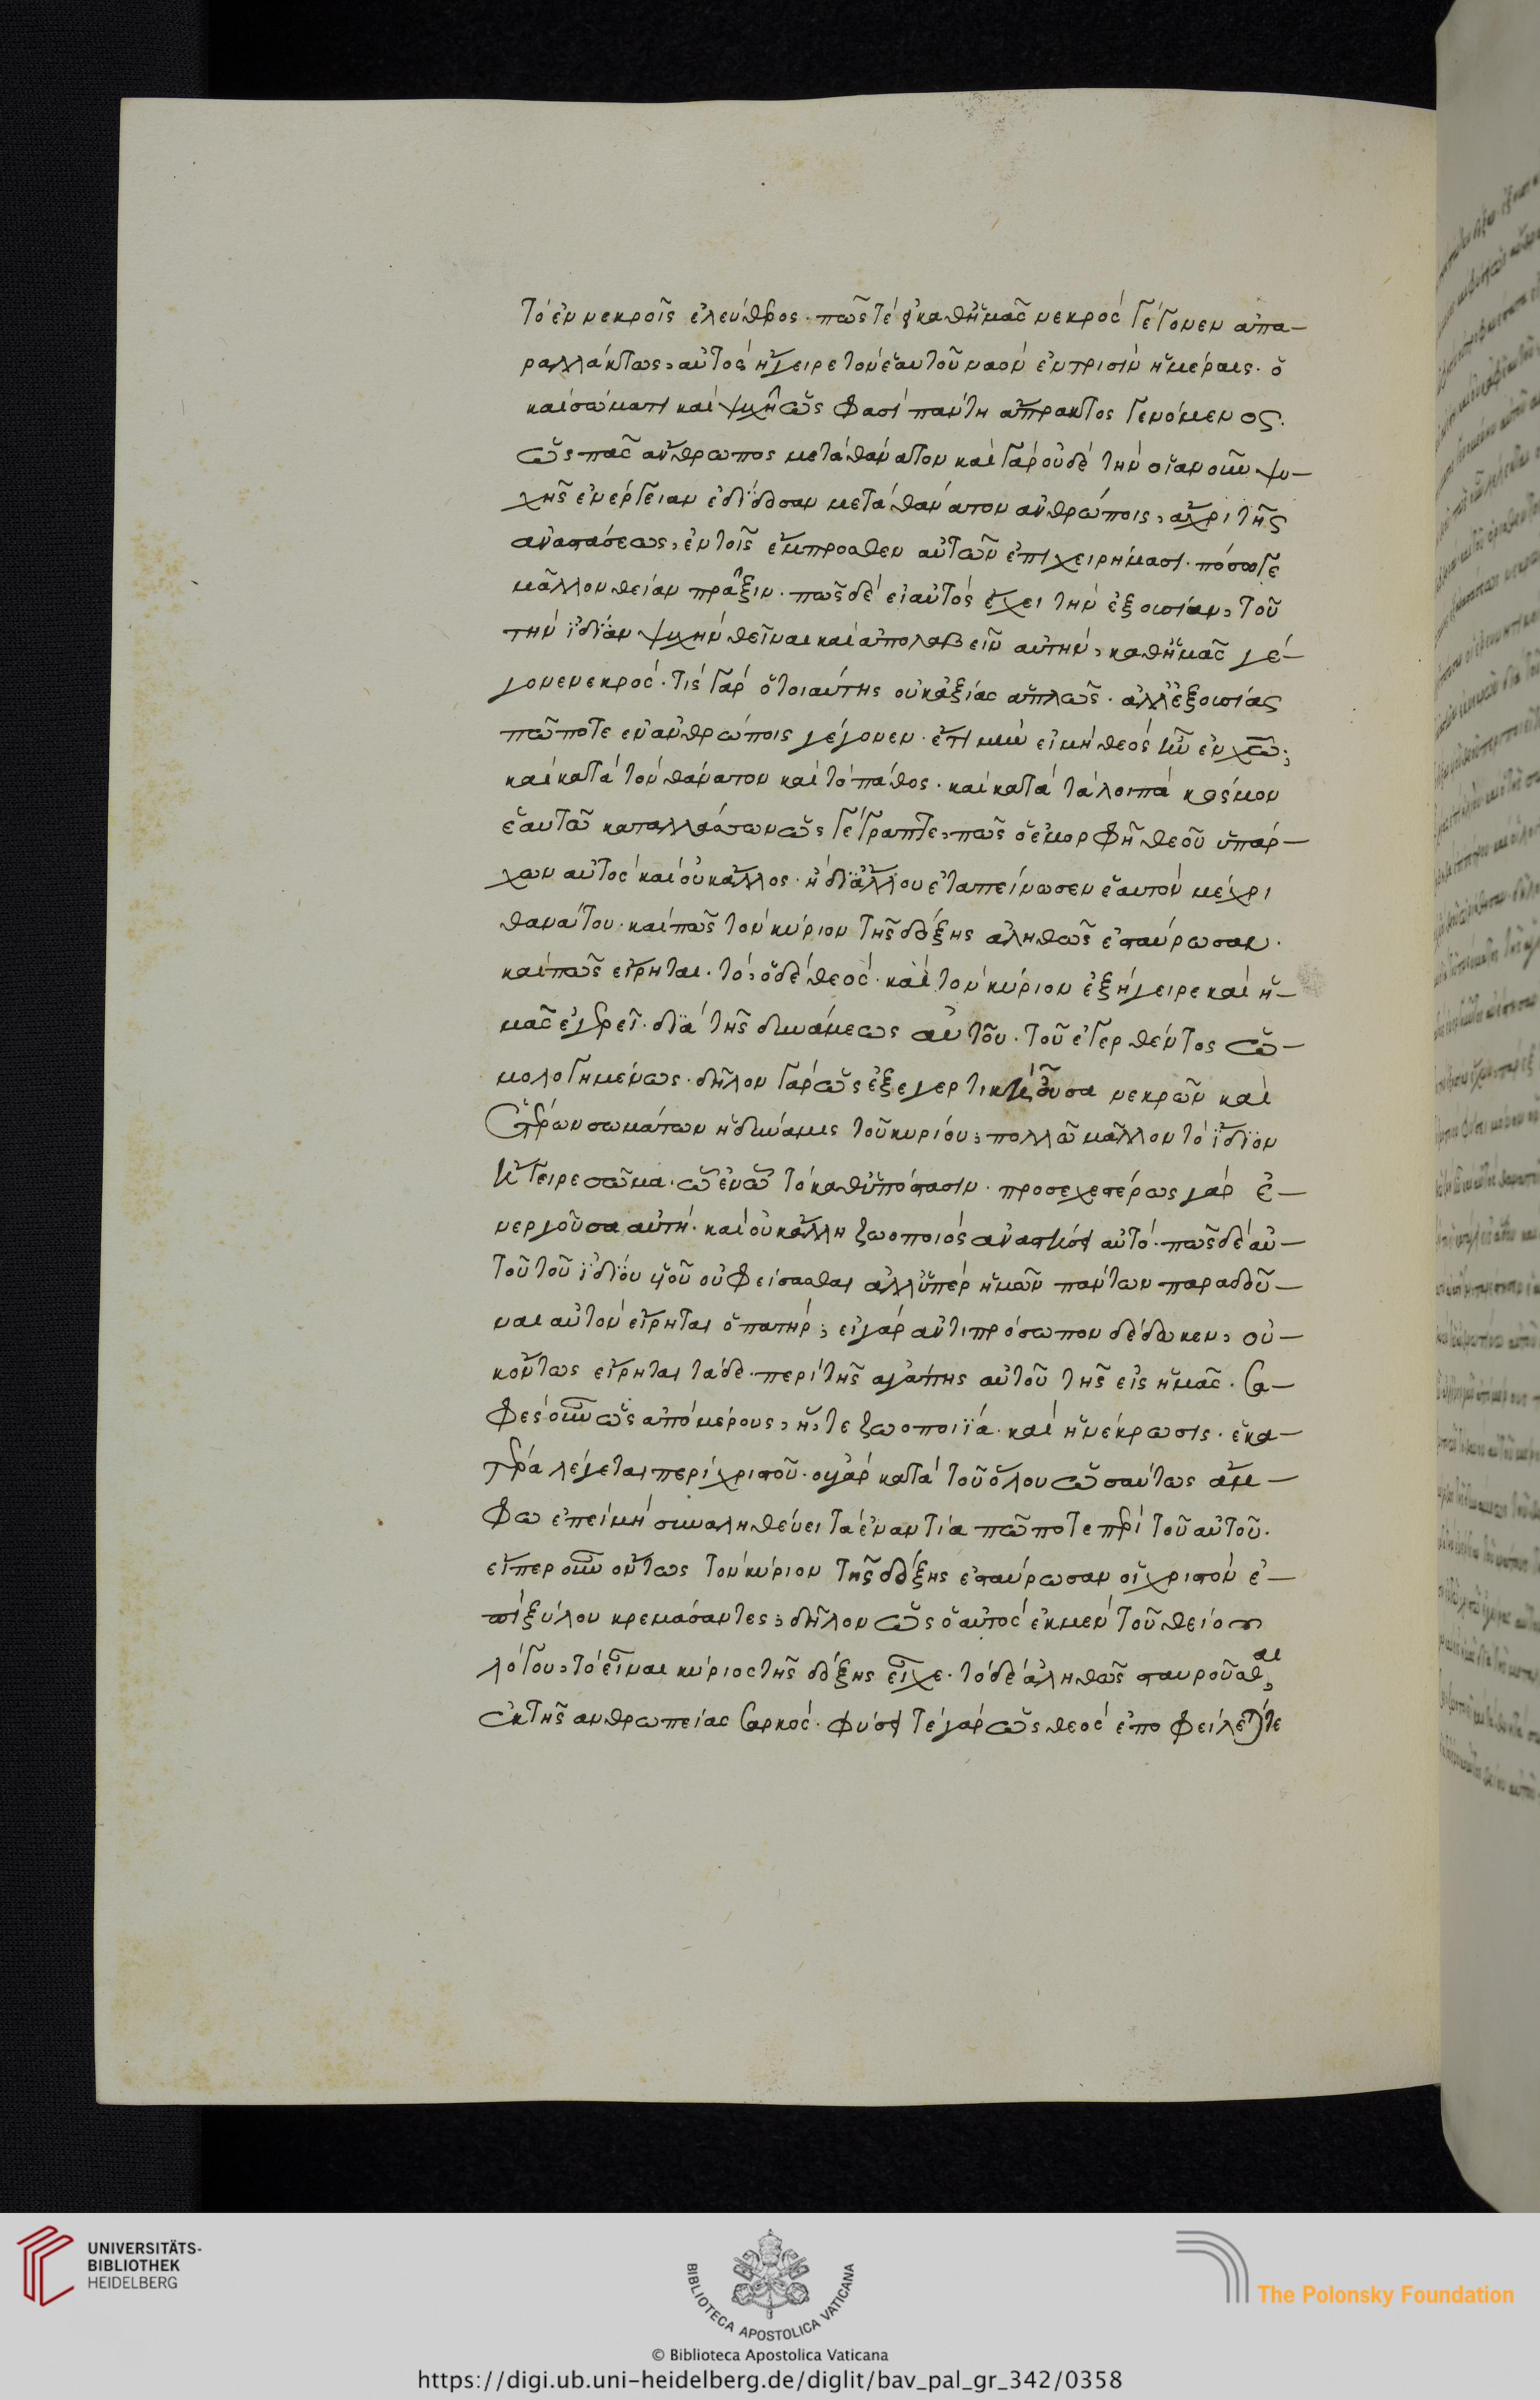 τὸ ἐν νεκροῖς ἐλεύθερος. πῶς τέ καθ ἡμᾶς νεκρὸς γέγονεν ἀπα-
ραλλάκτως, αὐτὸς ἤγειρε τὸν ἑαυτοῦ ναὸν ἐν τρισὶν ἡμέραις. ὁ
καὶ σώματι καὶ ψυχῇ ὥς φασὶ πάντη ἄπρακτος γενόμενος.
ὡς πᾶς ἄνθρωπος μετὰ θάνατον καὶ γὰρ οὐδὲ τὴν οἵαν οὖν ψυ-
χῆς ἐνέργειαν ἐδίδοσαν μετὰ θάνατον ἀνθρώποις, ἄχρι τῆς
ἀναστάσεως, ἐν τοῖς ἔμπροσθεν αὐτῶν ἐπιχειρήμασι. πόσω γε
μᾶλλον θείαν πρᾶξιν. πῶς δὲ εἰ αὐτὸς ἔχει τὴν ἐξουσίαν, τοῦ
τὴν ἰδίαν ψυχὴν θεῖναι καὶ ἀπολαβεῖν αὐτὴν, καθ ἡμᾶς γέ-
γονε νεκρός. τίς γὰρ ὁ τοιαύτης οὐκ ἀξίας ἁπλῶς. ἀλλ ἐξουσίας
πώποτε ἐν ἀνθρώποις γέγονεν. εἰ μὴ θεὸς ἦν ἐν χῶ;
καὶ κατὰ τὸν θάνατον καὶ τὸ πάθος. καὶ κατὰ τὰ λοιπὰ κόσμον
ἑαυτῶ καταλλάσσων ὡς γέγραπτε, πῶς ὁ ἐν μορφῇ θεοῦ ὑπάρ-
χων αὐτὸς καὶ οὐκ ἄλλος. ἢ δι ἄλλου ἐταπείνωσεν ἑαυτὸν μέχρι
θανάτου. καὶ πῶς τὸν κύριον τῆς δόξης ἀληθῶς ἐσταύρωσαν.
καὶ πῶς εἴρηται. τὸ, ὁ δὲ θεὸς. καὶ τὸν κύριον ἐξήγειρε καὶ ἡ-
μᾶς ἐγερεῖ. διὰ τῆς δυνάμεως αὐτοῦ. τοῦ ἐγερθέντος ὡ-
μολογημένως. δῆλον γὰρ ὡς ἐξεγερτικὴ οὖσα νεκρῶν καὶ
ἑτέρων σωμάτων ἡ δύναμις τοῦ κυρίου, πολλῶ μᾶλλον τὸ ἴδιον
ἤγειρε σῶμα. ὧ ἐνῶ τὸ καθ ὑπόστασιν. προσεχεστέρως γὰρ ἐ-
νεργοῦσα αὐτὴ. καὶ οὐκ ἄλλη ζωοποιὸς αὐτό. πῶς δὲ αὐ-
τοῦ τοῦ ἰδίου υἱοῦ οὐ φείσασθαι ἀλλ ὑπὲρ ἡμῶν πάντων παραδοῦ-
ναι αὐτὸν εἴρηται ὁ πατήρ; εἰ γὰρ ἀντιπρόσωπον δέδωκεν, οὐ-
κ ὄντως εἴρηται τάδε. περὶ τῆς ἀγάπης αὐτοῦ τῆς εἰς ἡμᾶς. σα-
φὲς οὖν ὡς ἀπὸ μέρους, ἥ, τε ζωοποιΐα. καὶ ἡ νέκρωσις. ἑκα-
τέρα λέγεται περὶ χριστοῦ. οὐ γὰρ κατὰ τοῦ ὅλου ὡσαύτως ἄμ-
φω ἐπεὶ μὴ συναληθεύει τὰ ἐναντία πώποτε περὶ τοῦ αὐτοῦ.
εἴπερ οὖν οὕτως τὸν κύριον τῆς δόξης ἐσταύρωσαν οἱ χριστὸν ἐ-
πὶ ξύλου κρεμάσαντες, δῆλον ὡς ὁ αὐτὸς ἐκ μὲν τοῦ θείου
λόγου, τὸ εἶναι κύριος τῆς δόξης εἶχε. τὸ δὲ ἀληθῶς σταυροῦσθαι,
ἐκ τῆς ἀνθρωπείας σαρκὸς. φύσει τὲ γὰρ ὡς θεὸς